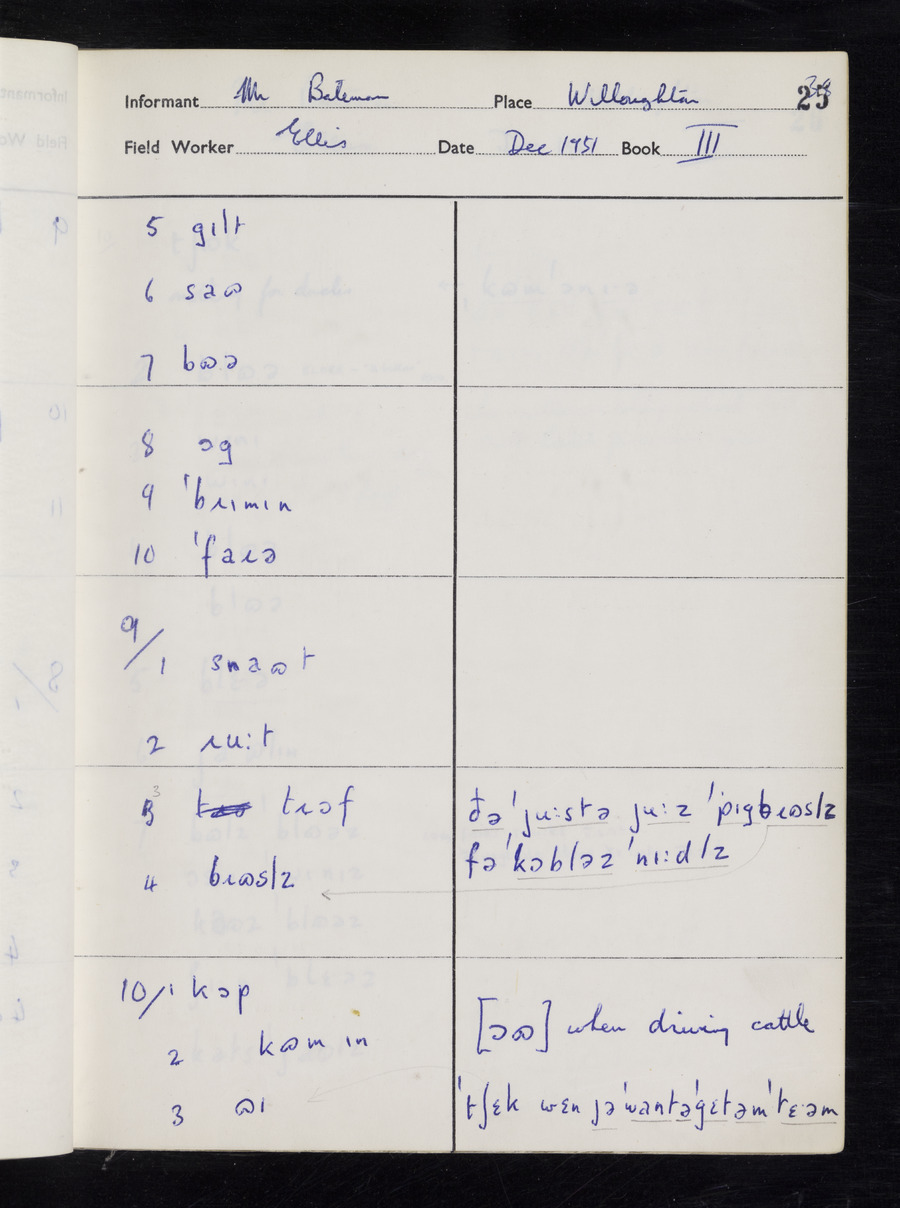 Informant Mr Bateman Place Willoughton 25
Field Worker Ellis Date Dec 1951 Book III
5 gɪlt
6 saɷ
7 bɷə
8 ɔg
9 ˈbɹɪmɪn
10 ˈfaɹə
9/1 snaɷt
2 ɹuːt
3 tɹɔf ðə ˈjuːstə juːz ˈpɪgbɹɷslz
4 bɹɷslz fə ˈkɔbləz ˈniːdlz
10/1 kəp
2 kɷm ɪn [ɔɷ] when driving cattle
3 ɷɪ ˈtʃɛk wɛn jəˈwantəˈgɛtəmˈtɛəm